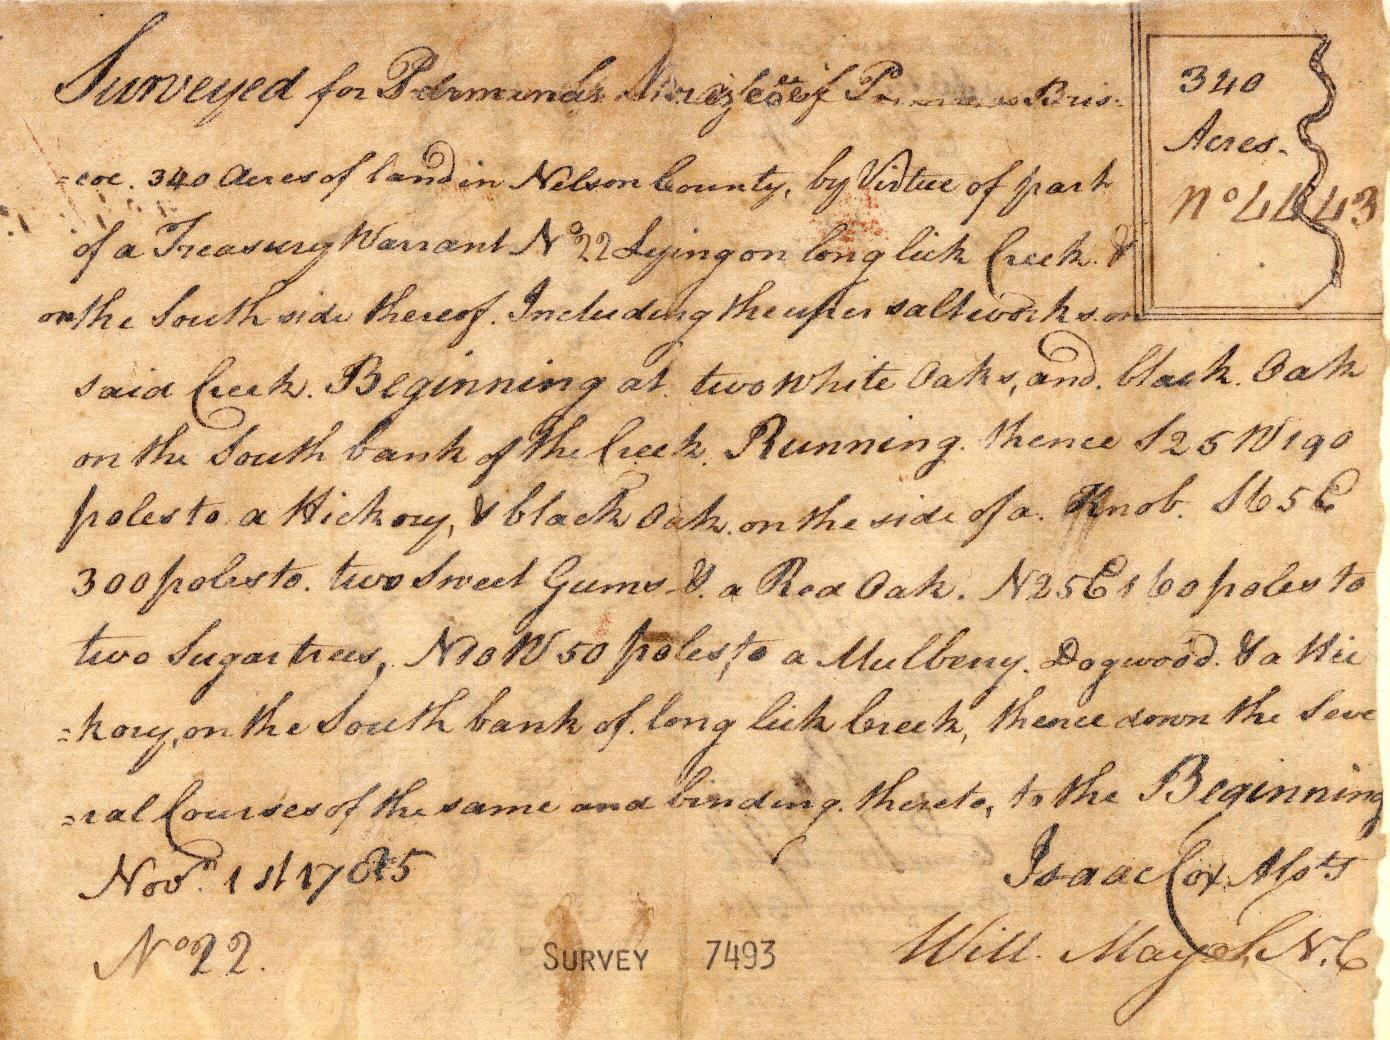 Surveyed for
340
Acres.
No 4443
Bris-
=coe. 340 Acres of land in Nelson County, by Virtue of part
of a Treasury Warrant No 22 Lying on long lick Creek. &
on the South side thereof. Including the uper saltworks on
said Creek. Beginning at two White Oaks, and. black. Oak
on the South bank of the Creek. Running. thence S25W190
poles to a Hickory, & black Oak. on the side of a. Knob. S65E
300 poles to. two Sweet Gums & a Red Oak. N25E160 poles to
two Sugartrees, N10W50 poles, to a Mulberry. Dogwood. & a Hic
=kory, on the South bank of. long lick Creek, thence down the Seve
=ral Courses of the same and binding. thereto, to the Beginning
Novr. 1st 1785
Isaac Cox. Asst S
No 22.
SURVEY 7493
Will. May S. N. C